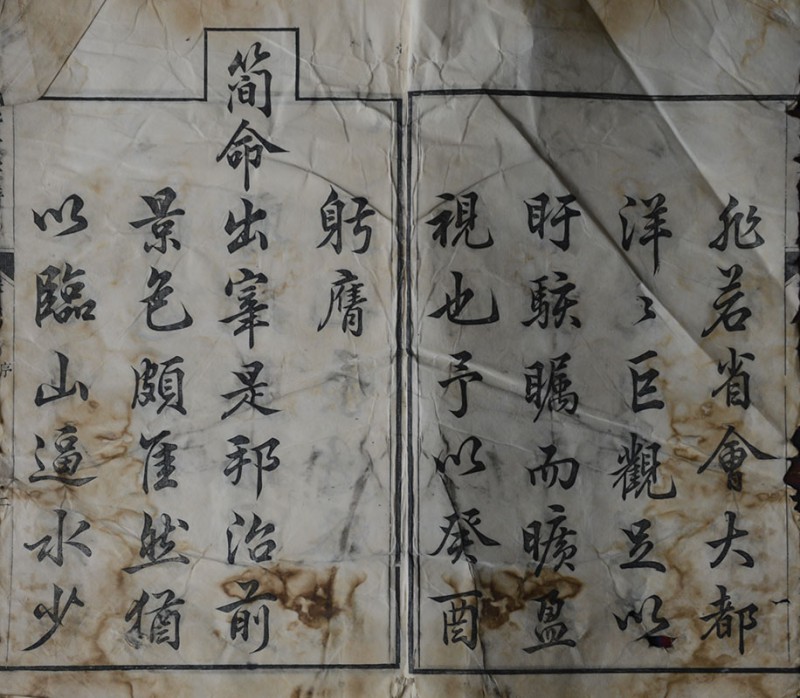 非若省會大都
洋〻巨觀足以
盱駭矚而曠盈
視也予以癸酉
躬膺
簡命出宰是邦治前
景色頗佳然猶
以臨山逼水少
序